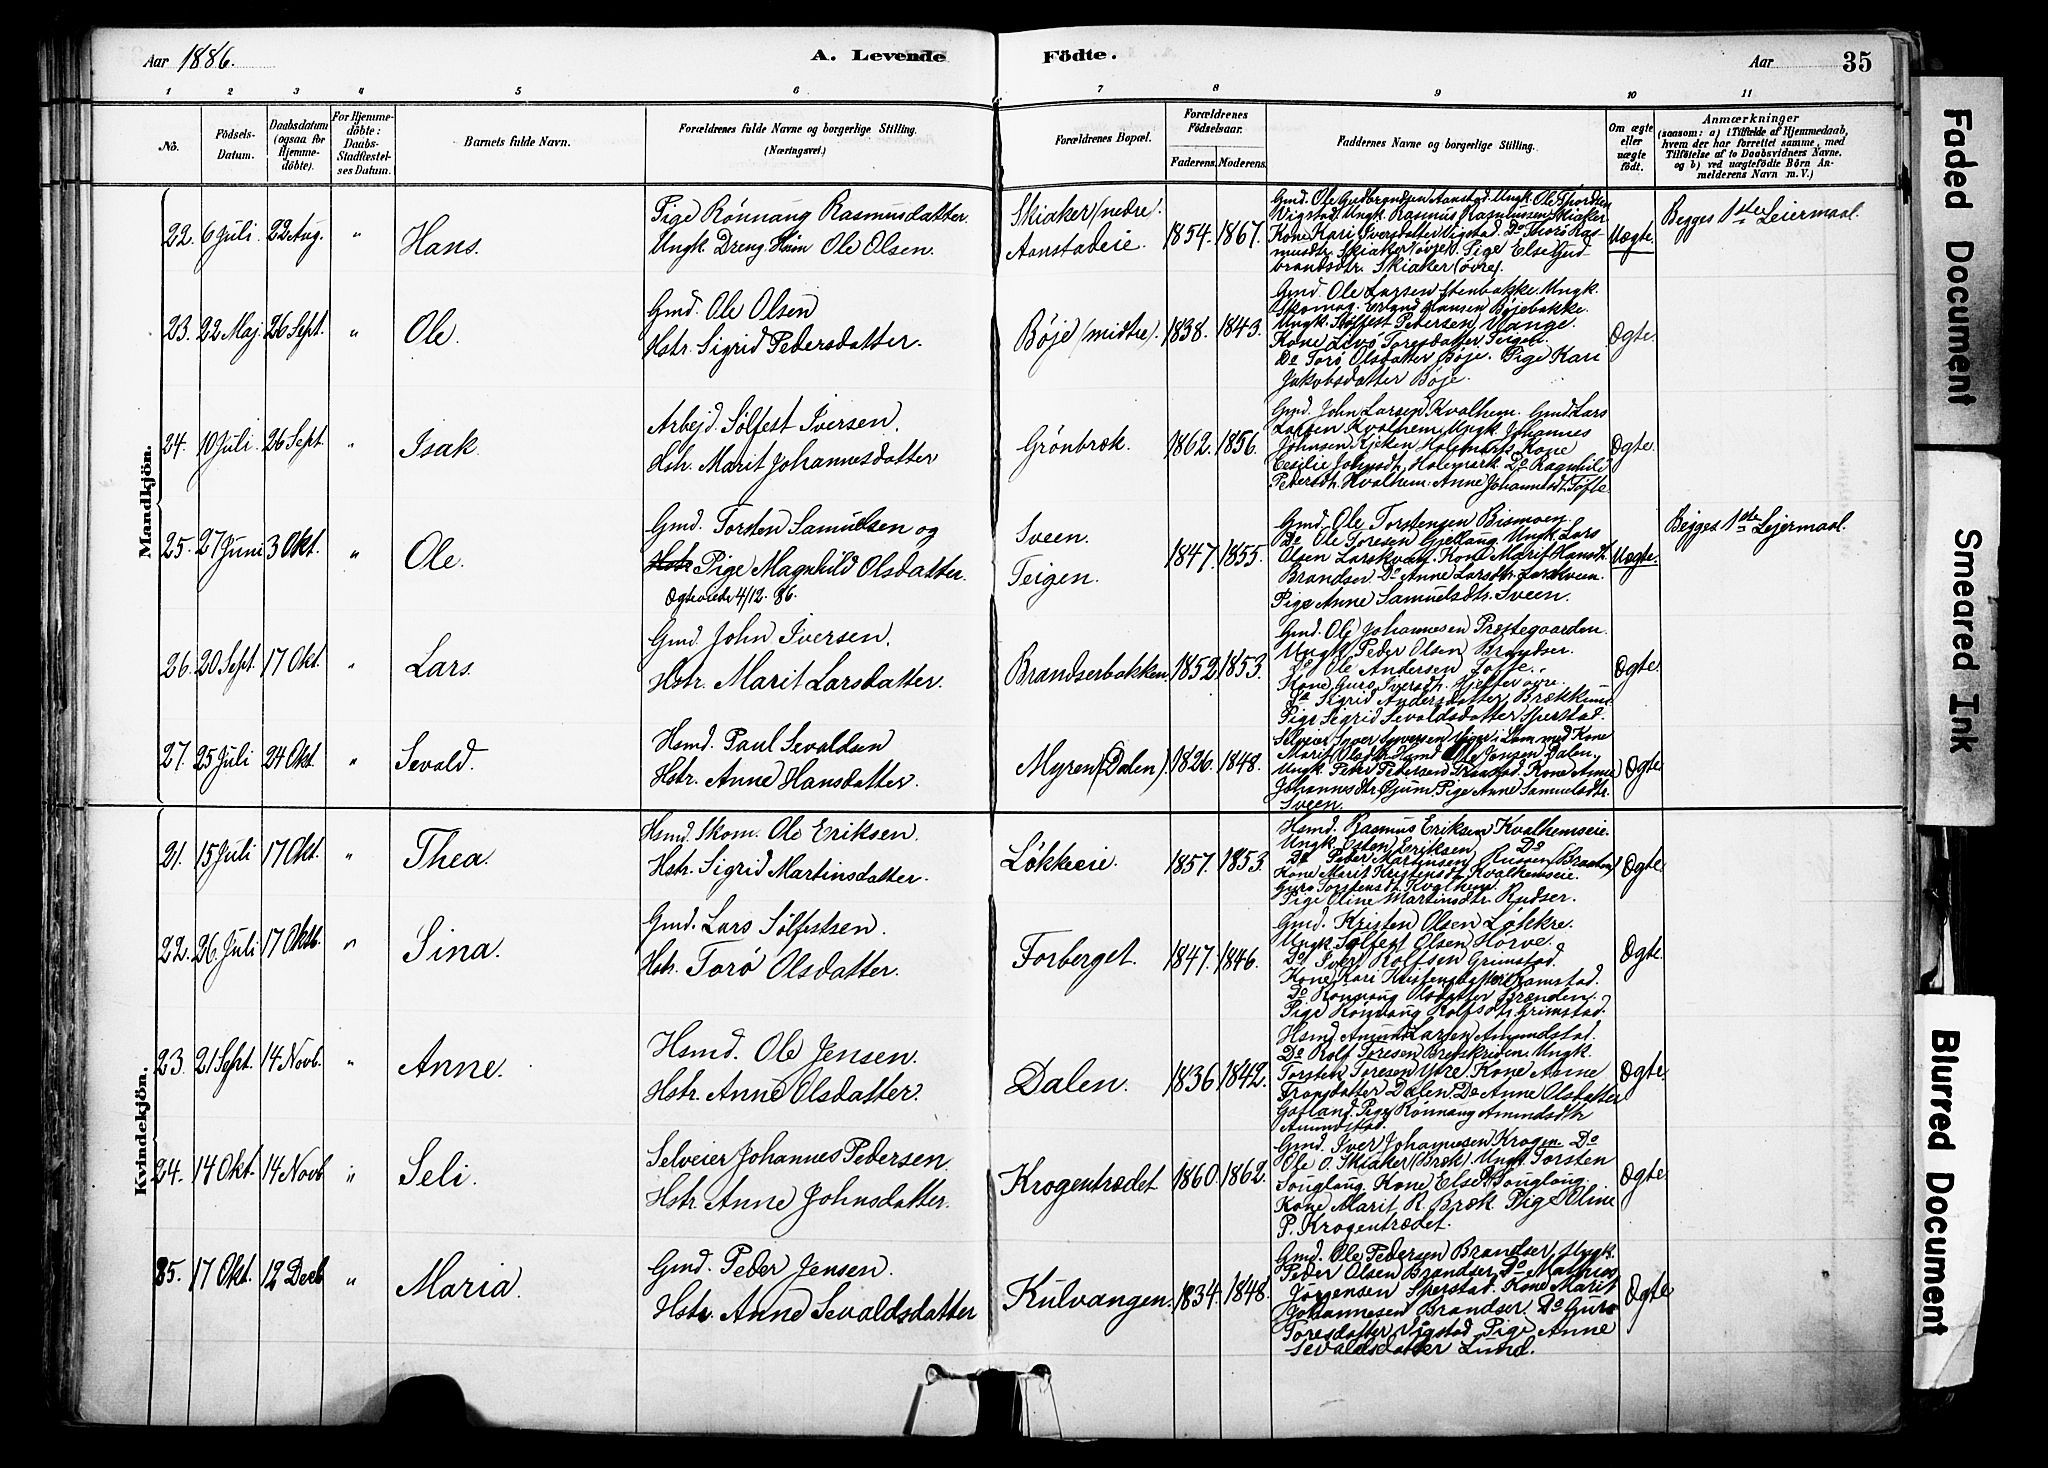 Aar 1886.
A. Levende Födte.
Aar 35
1 2 3 4 5 6 7 8 9 10 11
No.
Födsels-Datum.
Daabsdatum (ogsaa for Hjemme-döbte).
For Hjemme-döbte: Daabs-Stadfæstel-ses Datum.
Barnets fulde Navn.
Forældrenes fulde Navne og borgerlige Stilling. (Næringsvei.)
Forældrenes Bopæl.
Forældrenes Födselsaar.
Faderens. Moderens.
Faddernes Navne og borgerlige Stilling.
Om ægte eller uægte födt.
Anmærkninger
(saasom: a) i Tilfælde af Hjemmedaab,
hvem der har forrettet samme, med
Tilföielse af to Daabsvidners Navne,
og b) ved uægtefödte Börn An-
melderens Navn m. V.)
Mandkjön.
22. 6 Juli. 22 Aug. " Hans.
Pige Rönnaug Rasmusdatter
Ungk. Dreng Ole Olsen.
Skiaker (nedre).
Aanstadeie
1854. 1867.
Gmd. Ole Gudbrandsen Aanstad. Ungk. Ole Thordsen
Vigstad. Ungk. Rasmus Rasmussen Skiaker
Kone Kari Iversdatter Vigstad. Do Thorö Ras-
musdtr. Skiaker (övre). Pige Else Gud-
brandsdtr. Skiaker (övre).
Uægte.
Begges 1ste Leiermaal.
23. 22 Maj. 26 Sept. " Ole.
Gmd. Ole Olsen
Hstr. Sigrid Pedersdatter.
Böje (midtre).
1838. 1843.
Gmd. Ole Larsen Stenbakke. Ungk.
Skomag. Erland Hansen Böjebakke.
Ungk. Sölfest Pedersen Vange.
Kone Livö Toresdatter Teigen.
Do Torö Olsdatter Böje. Pige Kari
Jakobsdatter Böje.
Ægte.
24. 10 Juli. 26 Sept. " Isak.
Arbejd. Sölfest Iversen.
Hstr. Marit Johannesdatter
Grönbræk.
1862. 1856.
Gmd. John Larsen Kvalhem. Gmd. Lars
Larsen Kvalhem. Ungk. Johannes
Johnsen Kjæken Holemark. Kone
Cecilie Johnsdtr. Holemark. Do Ragnhild
Pedersdtr. Kvalhem. Anne Johannesdt. Töfte
Ægte.
25. 27 Juni 3 Okt. " Ole.
Gmd. Torsten Samuelsen og
Hstr Pige Magnhild Olsdatter.
Ægteviede 4/12. 86.
Sveen.
Teigen.
1847. 1855.
Gmd. Ole Torstensen Bismoen.
Do Ole Toresen Gjeilaug. Ungk. Lars
Olsen Larskvam. Kone Marit Hansdt.
Brandser Do Anne Larsdtr. Larssveen.
Pige Anne Samuelsdtr. Sveen.
Uægte.
Begges 1ste Lejermaal.
26. 20 Sept. 17 Okt. " Lars.
Gmd. John Iversen.
Hstr. Marit Larsdatter.
Brandserbakken.
1852. 1853.
Gmd. Ole Johannesen Præstegaarden.
Ungk. Peder Olsen Brandser.
Do Ole Andersen Töfte.
Kone Guro Iversdtr. Hjelter övre.
Do Sigrid Andersdatter Brækkum.
Pige Sigrid Sevaldsdatter Sperstad.
Ægte.
27. 25 Juli 24 Okt. " Sevald.
Hsmd. Paul Sevaldsen
Hstr. Anne Hansdatter.
Myren (Dalen).
1826. 1848.
Selveier Iver Syversen i Lom med Kone
Marit Olsdtr. Hsmd Ole Jensen Dalen.
Ungk. Peder Pedersen Kone Anne
Johannesdtr. Gjum. Pige Anne Samuelsdtr.
Sveen.
Ægte
Kvindekjön.
21. 15 Juli 17 Okt. " Thea.
Hsmd. Skom. Ole Eriksen.
Hstr. Sigrid Martinsdatter.
Lökkeeie.
1857. 1853.
Hsmd. Rasmus Eriksen Kvalhemseie.
Ungk. Esten Eriksen Do
Do Peder Martinsen Rusten (Braaten)
Kone Marit Kristensdt. Kvalhemseie.
Guro Torstensdt. Kvalhem.
Pige Oline Martinsdtr. Rudser.
Ægte.
22. 26 Juli. 17 Oktb. " Sina.
Gmd. Lars Sölfestsen.
Hstr. Torö Olsdatter.
Forberget.
1847. 1846.
Gmd. Kristen Olsen Lökkre.
Ungk. Sölfest Olsen Horve.
Do Iver Rolfsen Grimstad.
Kone Kari Kristensdatter Ramstad.
Do Rönnaug Olsdatter Brænden.
Pige Rönnaug Rolfsdtr. Grimstad.
Ægte.
23. 21 Sept. 14 Novb. " Anne.
Hsmd. Ole Jensen.
Hstr. Anne Olsdatter.
Dalen.
1836. 1842.
Hsmd Amund Larsen Amundstad.
Do Rolf Toresen Bredskriden. Ungk.
Torsten Toresen Ytre. Kone Anne
Fransdatter Dalen. Do Anne Olsdatter
Gofland. Pige Rönnaug Amundsdtr
Amundstad.
Ægte.
24. 14 Okt. 14 Novb " Seli.
Selveier Johannes Pedersen.
Hstr. Anne Johnsdatter.
Krogentrædet
1860. 1862.
Gmd. Iver Johannesen Krogen. Do
Ole O. Skiaker (Bræk). Ungk. Torsten
Souglaug. Kone Else Souglaug.
Kone Marit R. Bræk. Pige Oline
P. Krogentrædet.
Ægte
25. 17 Okt. 12 Decb " Maria.
Gmd. Peder Jensen.
Hstr. Anne Sevaldsdatter
Kulvangen.
1834. 1848.
Gmd. Ole Pedersen Brandser. Ungk.
Peder Olsen Brandser. Do Mathias
Jörgensen Sperstad. Kone Marit
Johannesen Brandser. Do Guro
Toresdatter Vigstad. Pige Anne
Sevaldsdatter Lund.
Ægte
Faded Document
Smeared Ink
Blurred Document